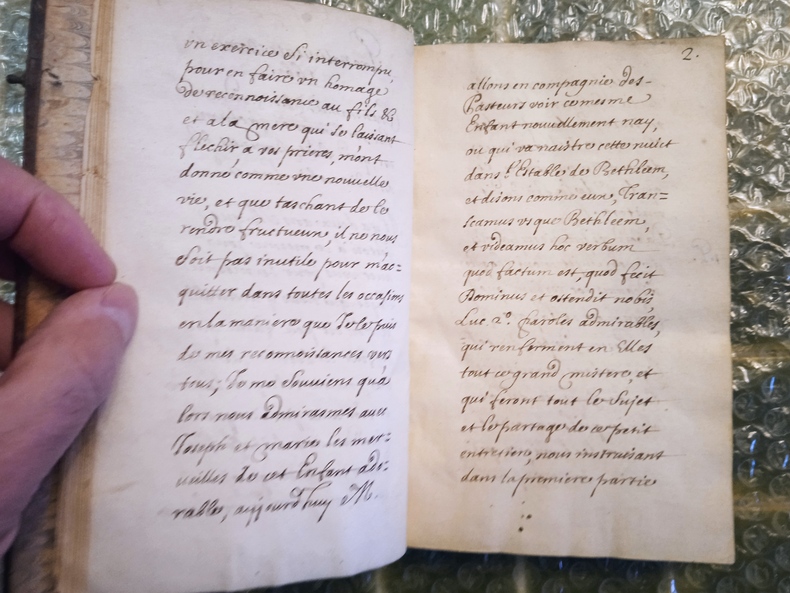 vn exercice si interrompu,
pour en faire vn homage
de reconnoissance au fils &
et a la mere qui se laissant
flechir a vos prieres, m'ont
donné comme vne nouvelle
vie, et que taschant de le
rendre fructueux, il ne nous
soit pas inutile pour m'ac=
quitter dans toutes les occasions
en la maniere que Je le puis
de mes reconnoissances vers
tous; Je me souviens qu'a
lors nous admirasmes auec
Joseph et marie les mer=
ueilles de cet Enfant ado=
rable, aujourd'huy M.
2.
allons en compagnie des-
Pasteurs voir ce mesme
Enfant nouuellement nay,
ou qui va naistre cette nuict
dans l'Estable de Bethleem,
et disons comme eux, Tran=
seamus vsque Bethleem,
et videamus hoc verbum
quod factum est quod fecit
Dominus et ostendit nobis
Luc. 2°. Paroles admirables,
qui renferment en Elles
tout ce grand mistere, et
qui feront tout le Sujet
et le partage de ce petit
entretien, nous instruisant
dans la premiere partie